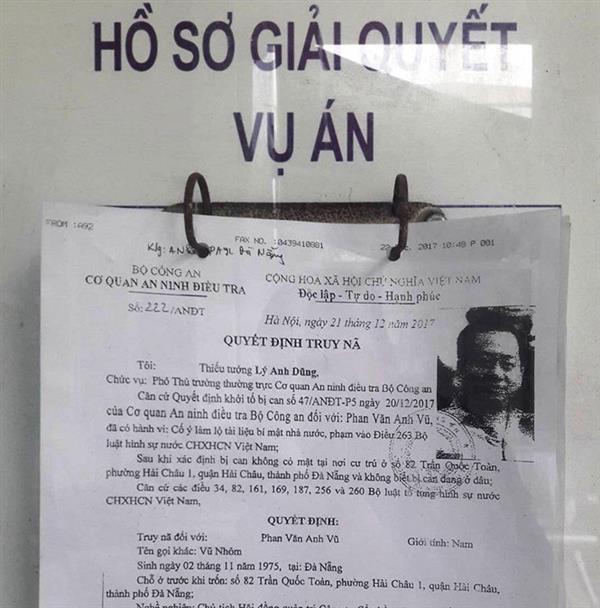 HỒ SƠ GIẢI QUYẾT
VỤ ÁN
FROM :A92
FAX NO. :0439410881
2017 10:48 P 001
K/g:
Đà Nẵng
BỘ CÔNG AN
CỘNG HOÀ XÃ HỘI CHỦ NGHĨA VIỆT NAM
CƠ QUAN AN NINH ĐIỀU TRA
Độc lập - Tự do - Hạnh phúc
Số: 222/ANĐT
Hà Nội, ngày 21 tháng 12 năm 2017
QUYẾT ĐỊNH TRUY NÃ
Tôi: Thiếu tướng Lý Anh Dũng,
Chức vụ: Phó Thủ trưởng thường trực Cơ quan An ninh điều tra Bộ Công an
Căn cứ Quyết định khởi tố bị can số 47/ANĐT-P5 ngày 20/12/2017
của Cơ quan An ninh điều tra Bộ Công an đối với: Phan Văn Anh Vũ,
đã có hành vi: Cố ý làm lộ tài liệu bí mật nhà nước, phạm vào Điều 263 Bộ
luật hình sự nước CHXHCN Việt Nam;
Sau khi xác định bị can không có mặt tại nơi cư trú ở số 82 Trần Quốc Toản,
phường Hải Châu 1, quận Hải Châu, thành phố Đà Nẵng và không biết bị can đang ở đâu;
Căn cứ các điều 34, 82, 161, 169, 187, 256 và 260 Bộ luật tố tụng hình sự nước
CHXHCN Việt Nam,
QUYẾT ĐỊNH:
Truy nã đối với: Phan Văn Anh Vũ Giới tính: Nam
Tên gọi khác: Vũ Nhôm
Sinh ngày 02 tháng 11 năm 1975, tại: Đà Nẵng
Chỗ ở trước khi trốn: số 82 Trần Quốc Toản, phường Hải Châu 1, quận Hải Châu,
thành phố Đà Nẵng.
Nghề nghiệp: Chủ tịch Hội đồng quản trị